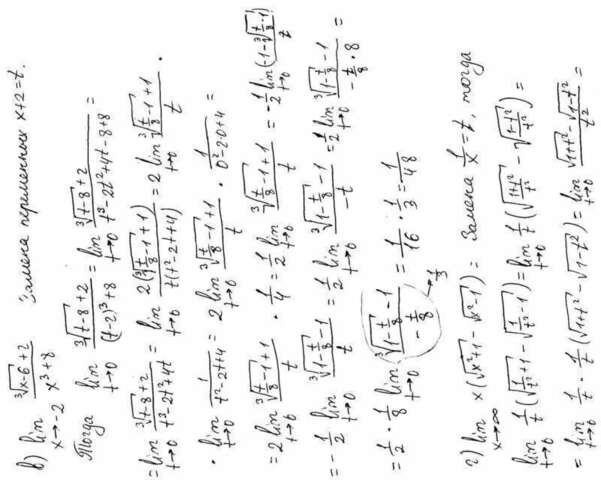 в) lim x→-2 (∛(x-6)+2)/(x³+8) Замена переменных x+2=t.
Тогда lim t→0 (∛(t-8)+2)/((t-2)³+8) = lim t→0 (∛(t-8)+2)/(t³-2t²+4t-8+8) =
= lim t→0 (∛(t-8)+2)/(t³-2t²+4t) = lim t→0 2(∛(t/8-1)+1)/(t(t²-2t+4)) = 2 lim t→0 (∛(t/8-1)+1)/t ·
· lim t→0 1/(t²-2t+4) = 2 lim t→0 (∛(t/8-1)+1)/t · 1/(0²-2·0+4) =
= 2 lim t→0 (∛(t/8-1)+1)/t · 1/4 = 1/2 lim t→0 (∛(t/8-1)+1)/t = -1/2 lim t→0 (-1-∛(t/8-1))/t
= -1/2 lim t→0 (∛(1-t/8)-1)/t = 1/2 lim t→0 (∛(1-t/8)-1)/-t = 1/2 lim t→0 (∛(1-t/8)-1)/(-t/8·8) =
= 1/2 · 1/8 lim t→0 (∛(1-t/8)-1)/(-t/8) = 1/16 · 1/3 = 1/48
→ 1/3
г) lim x→∞ x(√(x²+1)-√(x²-1)) = Замена 1/x=t, тогда
lim t→0 1/t(√(1/t²+1)-√(1/t²-1)) = lim t→0 1/t(√((1+t²)/t²)-√((1-t²)/t²)) =
= lim t→0 1/t · 1/t(√(1+t²)-√(1-t²)) = lim t→0 (√(1+t²)-√(1-t²))/t² =